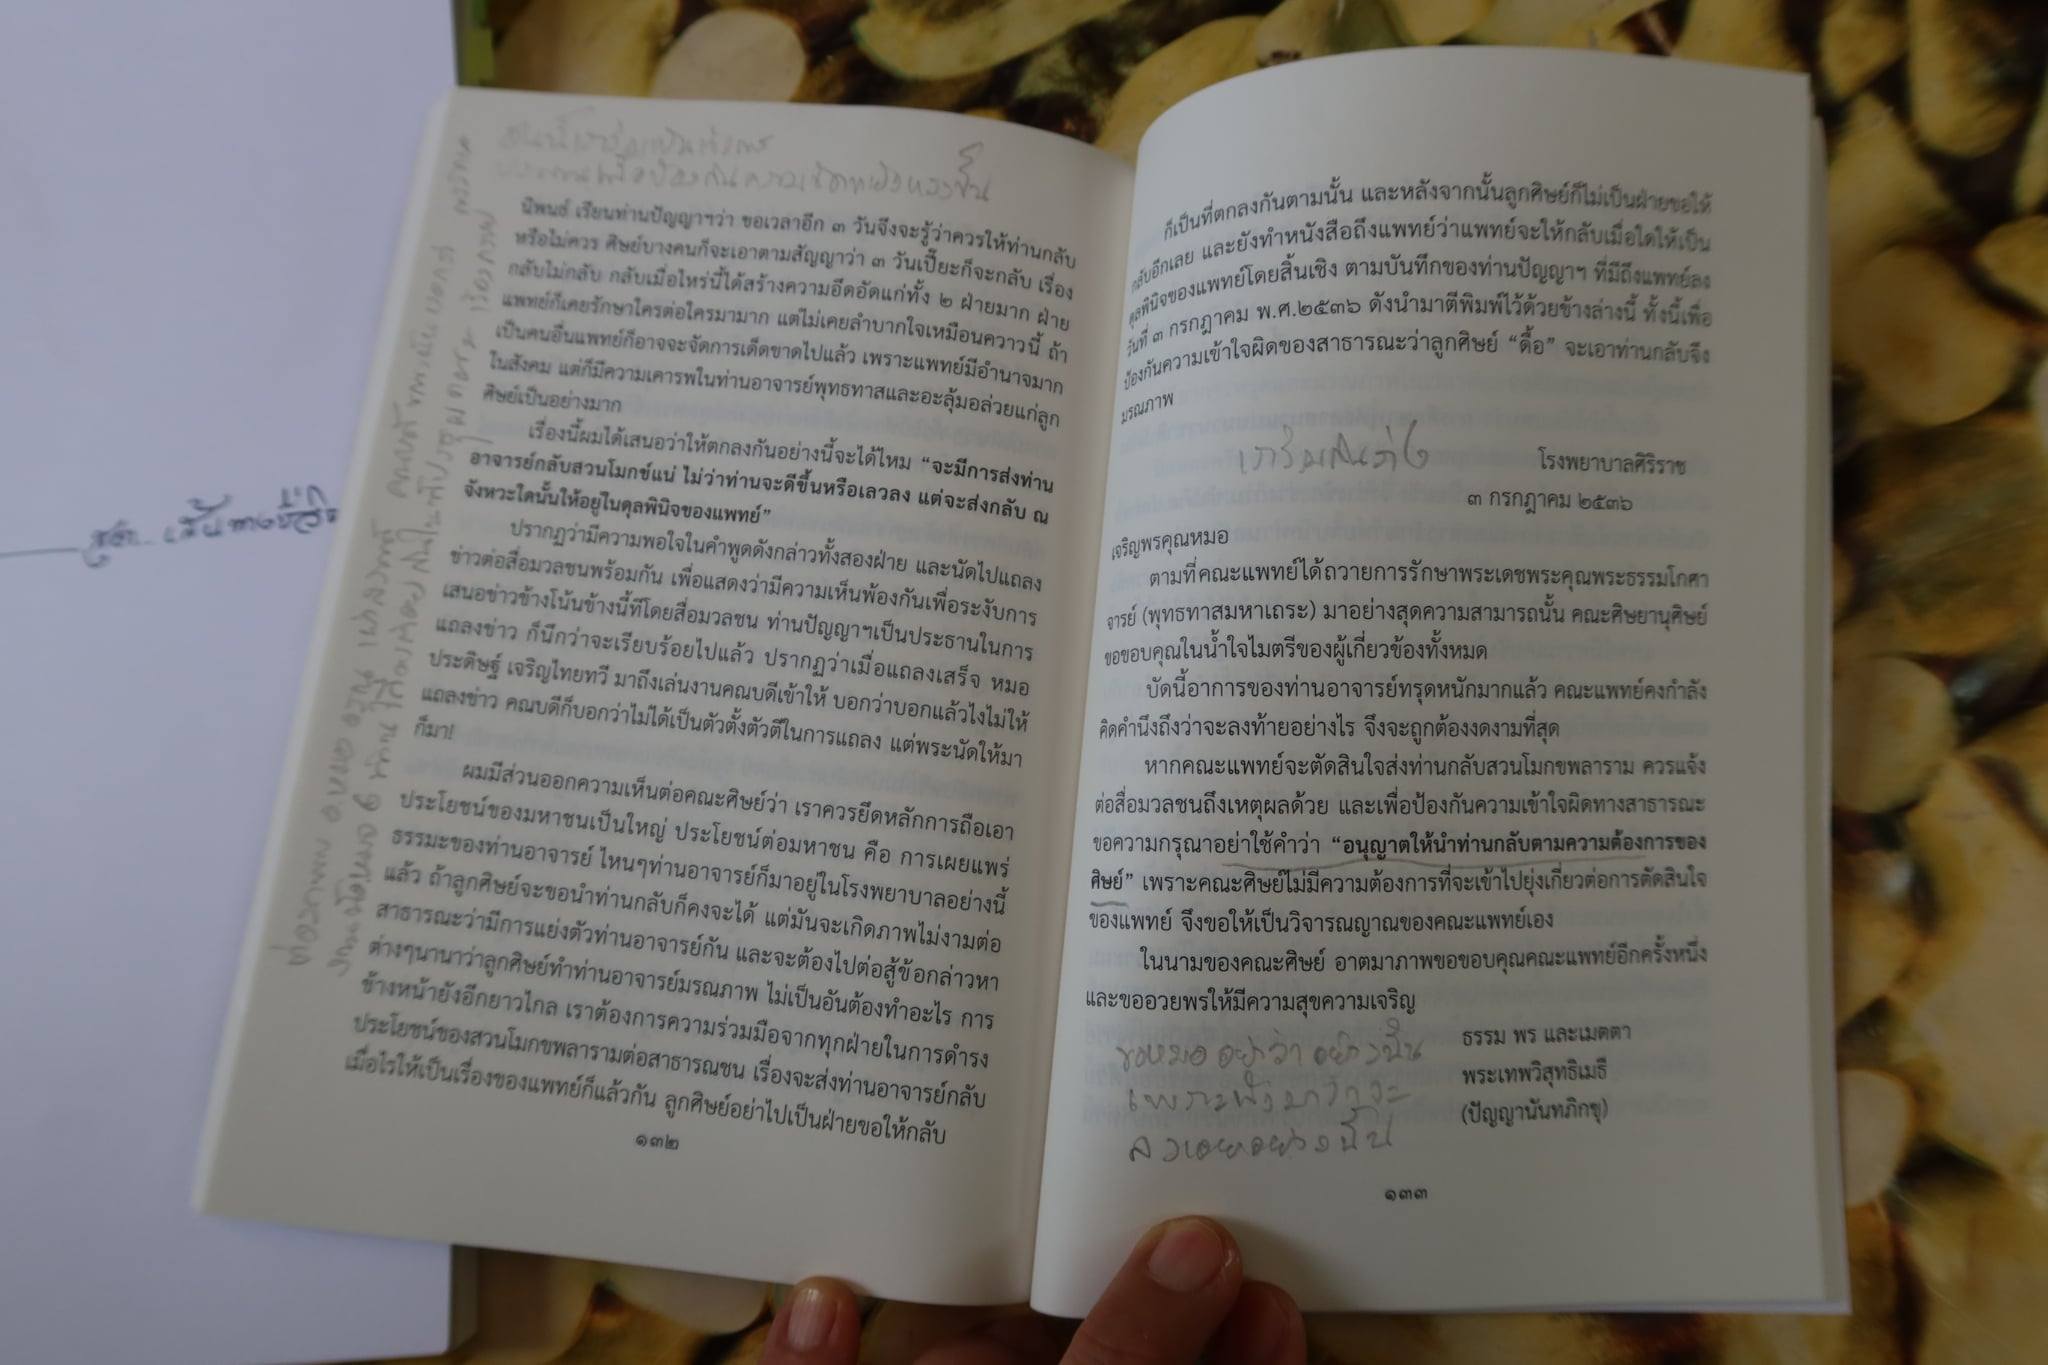 นิพนธ์ เรียนท่านปัญญาฯว่า ขอเวลาอีก ๓ วันจึงจะรู้ว่าควรให้ท่านกลับ
หรือไม่ควร ศิษย์บางคนก็จะเอาตามสัญญาว่า ๓ วันเปี๊ยะก็จะกลับ เรื่อง
กลับไม่กลับ กลับเมื่อไหร่นี้ได้สร้างความอึดอัดแก่ทั้ง ๒ ฝ่ายมาก ฝ่าย
แพทย์ก็เคยรักษาใครต่อใครมามาก แต่ไม่เคยลำบากใจเหมือนคราวนี้ ถ้า
เป็นคนอื่นแพทย์ก็อาจจะจัดการเด็ดขาดไปแล้ว เพราะแพทย์มีอำนาจมาก
ในสังคม แต่ก็มีความเคารพในท่านอาจารย์พุทธทาสและอะลุ้มอล่วยแก่ลูก
ศิษย์เป็นอย่างมาก
เรื่องนี้ผมได้เสนอว่าให้ตกลงกันอย่างนี้จะได้ไหม “จะมีการส่งท่าน
อาจารย์กลับสวนโมกข์แน่ ไม่ว่าท่านจะดีขึ้นหรือเลวลง แต่จะส่งกลับ ณ
จังหวะใดนั้นให้อยู่ในดุลพินิจของแพทย์”
ปรากฏว่ามีความพอใจในคำพูดดังกล่าวทั้งสองฝ่าย และนัดไปแถลง
ข่าวต่อสื่อมวลชนพร้อมกัน เพื่อแสดงว่ามีความเห็นพ้องกันเพื่อระงับการ
เสนอข่าวข้างโน้นข้างนี้ทีโดยสื่อมวลชน ท่านปัญญาฯเป็นประธานในการ
แถลงข่าว ก็นึกว่าจะเรียบร้อยไปแล้ว ปรากฏว่าเมื่อแถลงเสร็จ หมอ
ประดิษฐ์ เจริญไทยทวี มาถึงเล่นงานคณบดีเข้าให้ บอกว่าบอกแล้วไงไม่ให้
แถลงข่าว คณบดีก็บอกว่าไม่ได้เป็นตัวตั้งตัวตีในการแถลง แต่พระนัดให้มา
ก็มา!
ผมมีส่วนออกความเห็นต่อคณะศิษย์ว่า เราควรยึดหลักการถือเอา
ประโยชน์ของมหาชนเป็นใหญ่ ประโยชน์ต่อมหาชน คือ การเผยแพร่
ธรรมะของท่านอาจารย์ ไหนๆท่านอาจารย์ก็มาอยู่ในโรงพยาบาลอย่างนี้
แล้ว ถ้าลูกศิษย์จะขอนำท่านกลับก็คงจะได้ แต่มันจะเกิดภาพไม่งามต่อ
สาธารณะว่ามีการแย่งตัวท่านอาจารย์กัน และจะต้องไปต่อสู้ข้อกล่าวหา
ต่างๆนานาว่าลูกศิษย์ทำท่านอาจารย์มรณภาพ ไม่เป็นอันต้องทำอะไร การ
ข้างหน้ายังอีกยาวไกล เราต้องการความร่วมมือจากทุกฝ่ายในการดำรง
ประโยชน์ของสวนโมกขพลารามต่อสาธารณชน เรื่องจะส่งท่านอาจารย์กลับ
เมื่อไรให้เป็นเรื่องของแพทย์ก็แล้วกัน ลูกศิษย์อย่าไปเป็นฝ่ายขอให้กลับ
๑๓๒
ก็เป็นที่ตกลงกันตามนั้น และหลังจากนั้นลูกศิษย์ก็ไม่เป็นฝ่ายขอให้
กลับอีกเลย และยังทำหนังสือถึงแพทย์ว่าแพทย์จะให้กลับเมื่อใดให้เป็น
ดุลพินิจของแพทย์โดยสิ้นเชิง ตามบันทึกของท่านปัญญาฯ ที่มีถึงแพทย์ลง
วันที่ ๓ กรกฎาคม พ.ศ.๒๕๓๖ ดังนำมาตีพิมพ์ไว้ด้วยข้างล่างนี้ ทั้งนี้เพื่อ
ป้องกันความเข้าใจผิดของสาธารณะว่าลูกศิษย์ “ดื้อ” จะเอาท่านกลับจึง
มรณภาพ
โรงพยาบาลศิริราช
๓ กรกฎาคม ๒๕๓๖
เจริญพรคุณหมอ
ตามที่คณะแพทย์ได้ถวายการรักษาพระเดชพระคุณพระธรรมโกศา
จารย์ (พุทธทาสมหาเถระ) มาอย่างสุดความสามารถนั้น คณะศิษยานุศิษย์
ขอขอบคุณในน้ำใจไมตรีของผู้เกี่ยวข้องทั้งหมด
บัดนี้อาการของท่านอาจารย์ทรุดหนักมากแล้ว คณะแพทย์คงกำลัง
คิดคำนึงถึงว่าจะลงท้ายอย่างไร จึงจะถูกต้องงดงามที่สุด
หากคณะแพทย์จะตัดสินใจส่งท่านกลับสวนโมกขพลาราม ควรแจ้ง
ต่อสื่อมวลชนถึงเหตุผลด้วย และเพื่อป้องกันความเข้าใจผิดทางสาธารณะ
ขอความกรุณาอย่าใช้คำว่า “อนุญาตให้นำท่านกลับตามความต้องการของ
ศิษย์” เพราะคณะศิษย์ไม่มีความต้องการที่จะเข้าไปยุ่งเกี่ยวต่อการตัดสินใจ
ของแพทย์ จึงขอให้เป็นวิจารณญาณของคณะแพทย์เอง
ในนามของคณะศิษย์ อาตมาภาพขอขอบคุณคณะแพทย์อีกครั้งหนึ่ง
และขออวยพรให้มีความสุขความเจริญ
ธรรม พร และเมตตา
พระเทพวิสุทธิเมธี
(ปัญญานันทภิกขุ)
ขอหมออย่าว่าอย่างนั้น
๑๓๓